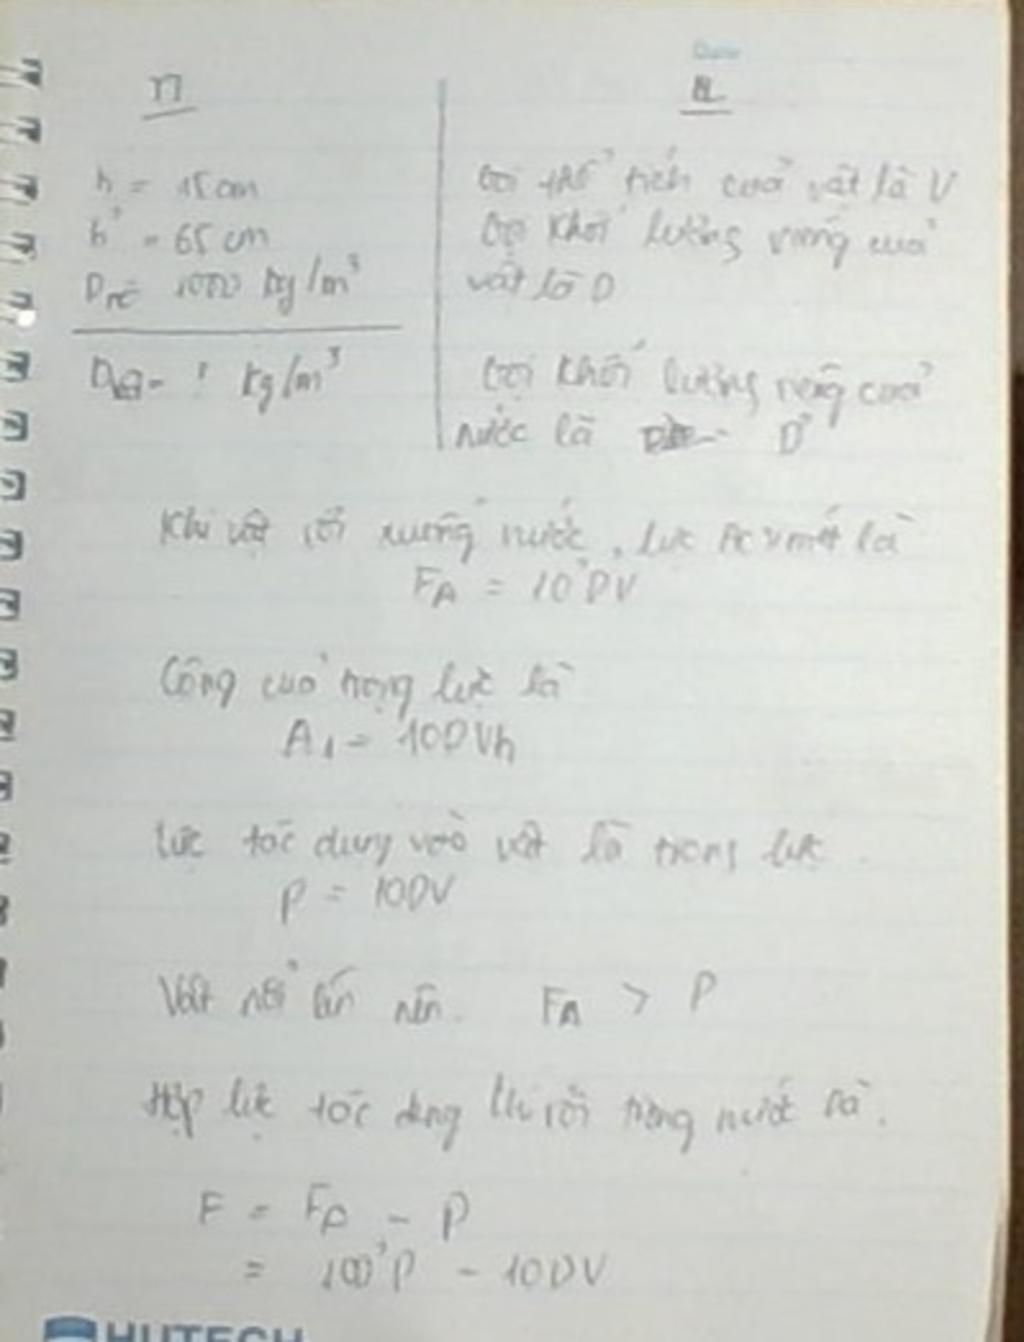 h = 15 cm
h' = 65 cm
Dn = 1000 kg/m³
Dvật = ? kg/m³
Gọi thể tích của vật là V
Gọi khối lượng riêng của
vật là D
Gọi khối lượng riêng của
nước là D'
Khi vật rơi xuống nước, lực Acsimét là
FA = 10D'V
Công của trọng lực là
A1 = 10DVh
Lực tác dụng vào vật là trọng lực.
P = 10DV
Vật nổi lên nên. FA > P
Hợp lực tác dụng khi rơi trong nước là.
F = FA - P
= 10D'P - 10DV
HUTECH